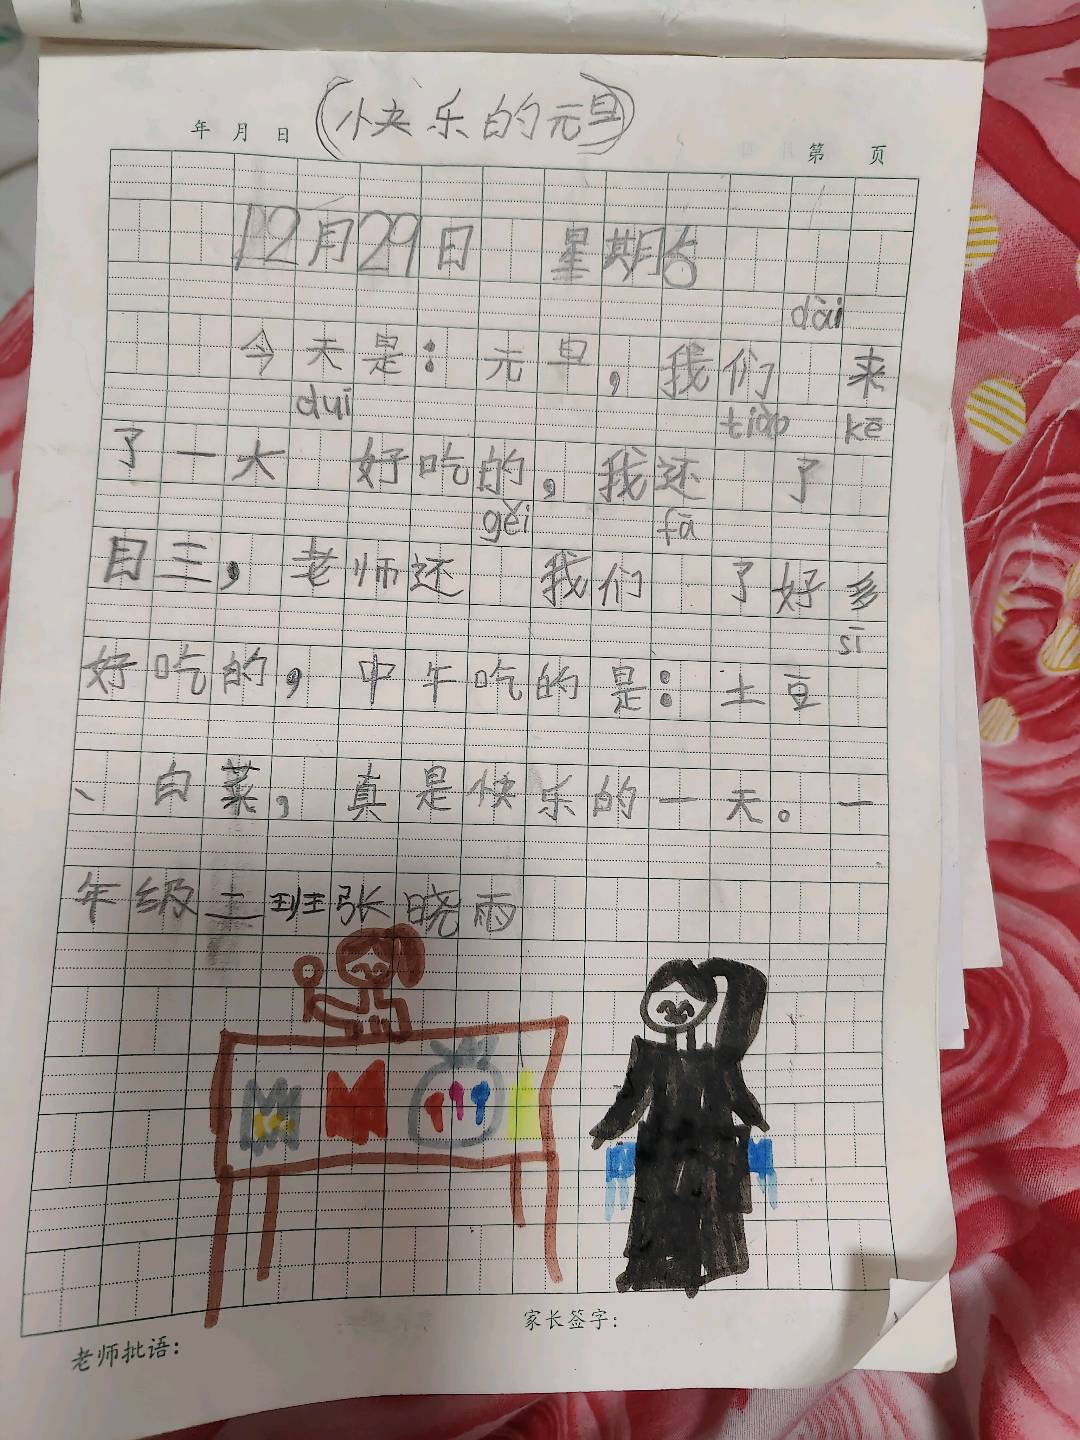 (快乐的元旦)
年 月 日 第 页
12月29日 星期5
dài
今天是：元旦，我们 来
duī tiào kē
了一大 好吃的，我还 了
gěi fā
目三，老师还 我们 了好多
sī
好吃的，中午吃的是：土豆
、白菜，真是快乐的一天。一
年级二班张晓雨
家长签字：
老师批语：